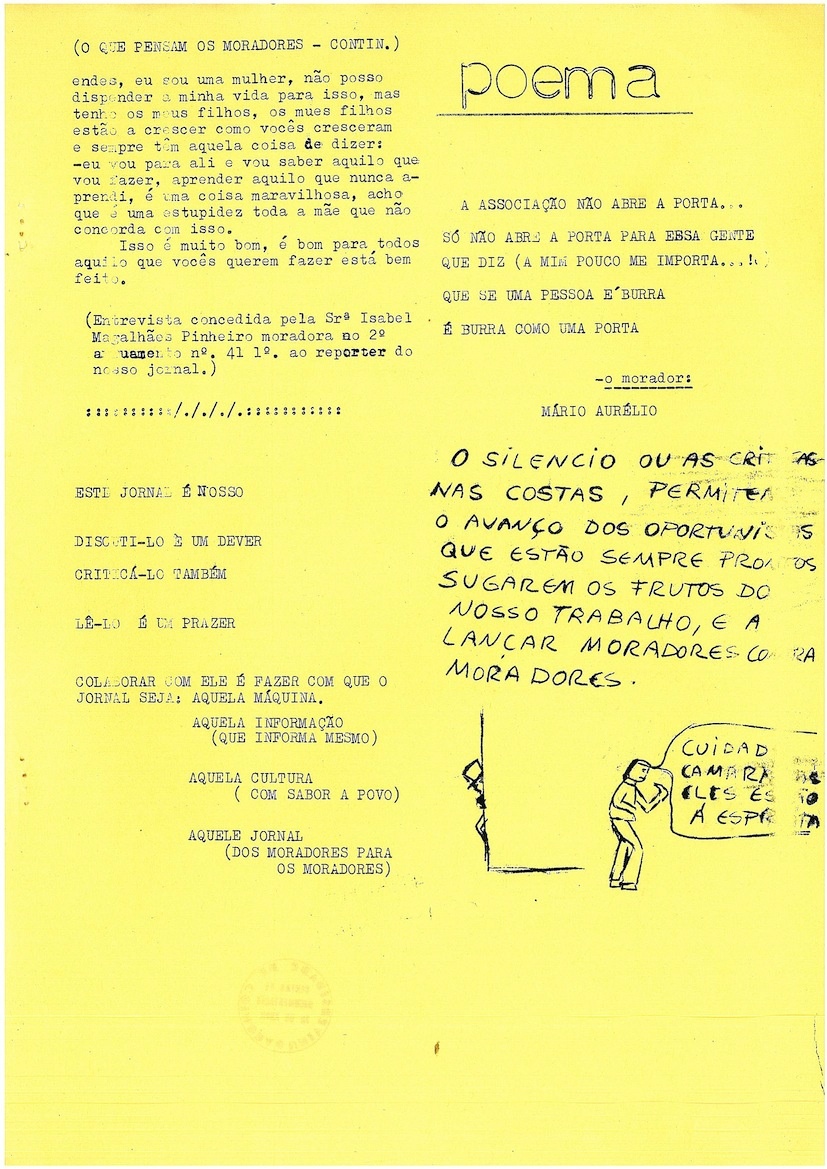 (O QUE PENSAM OS MORADORES - CONTIN.)
endes, eu sou uma mulher, não posso
dispender a minha vida para isso, mas
tenho os meus filhos, os mues filhos
estão a crescer como vocês cresceram
e sempre têm aquela coisa de dizer:
-eu vou para ali e vou saber aquilo que
vou fazer, aprender aquilo que nunca a-
prendi, é uma coisa maravilhosa, acho
que é uma estupidez toda a mãe que não
concorda com isso.
Isso é muito bom, é bom para todos
aquilo que vocês querem fazer está bem
feito.
(Entrevista concedida pela Srª Isabel
Magalhães Pinheiro moradora no 2º
nº. 41 1º. ao reporter do
nosso jornal.)
::::::::::/./././.:::::::::::
ESTE JORNAL É NOSSO
DISCUTI-LO È UM DEVER
CRITICÁ-LO TAMBÉM
LÊ-LO É UM PRAZER
COLABORAR COM ELE É FAZER COM QUE O
JORNAL SEJA: AQUELA MÁQUINA.
AQUELA INFORMAÇÃO
(QUE INFORMA MESMO)
AQUELA CULTURA
( COM SABOR A POVO)
AQUELE JORNAL
(DOS MORADORES PARA
OS MORADORES)
poema
A ASSOCIAÇÃO NÃO ABRE A PORTA...
SÓ NÃO ABRE A PORTA PARA ESSA GENTE
QUE DIZ (A MIM POUCO ME IMPORTA...!)
QUE SE UMA PESSOA E´BURRA
É BURRA COMO UMA PORTA
-o morador:
MÁRIO AURÉLIO
O SILENCIO OU AS CRITICAS
NAS COSTAS, PERMITEM
O AVANÇO DOS OPORTUNISTAS
QUE ESTÃO SEMPRE PRONTOS
SUGAREM OS FRUTOS DO
NOSSO TRABALHO, E A
LANÇAR MORADORES CONTRA
MORADORES.
CUIDAD
CAMARADAS
ELES ESTÃO
Á ESPREITA